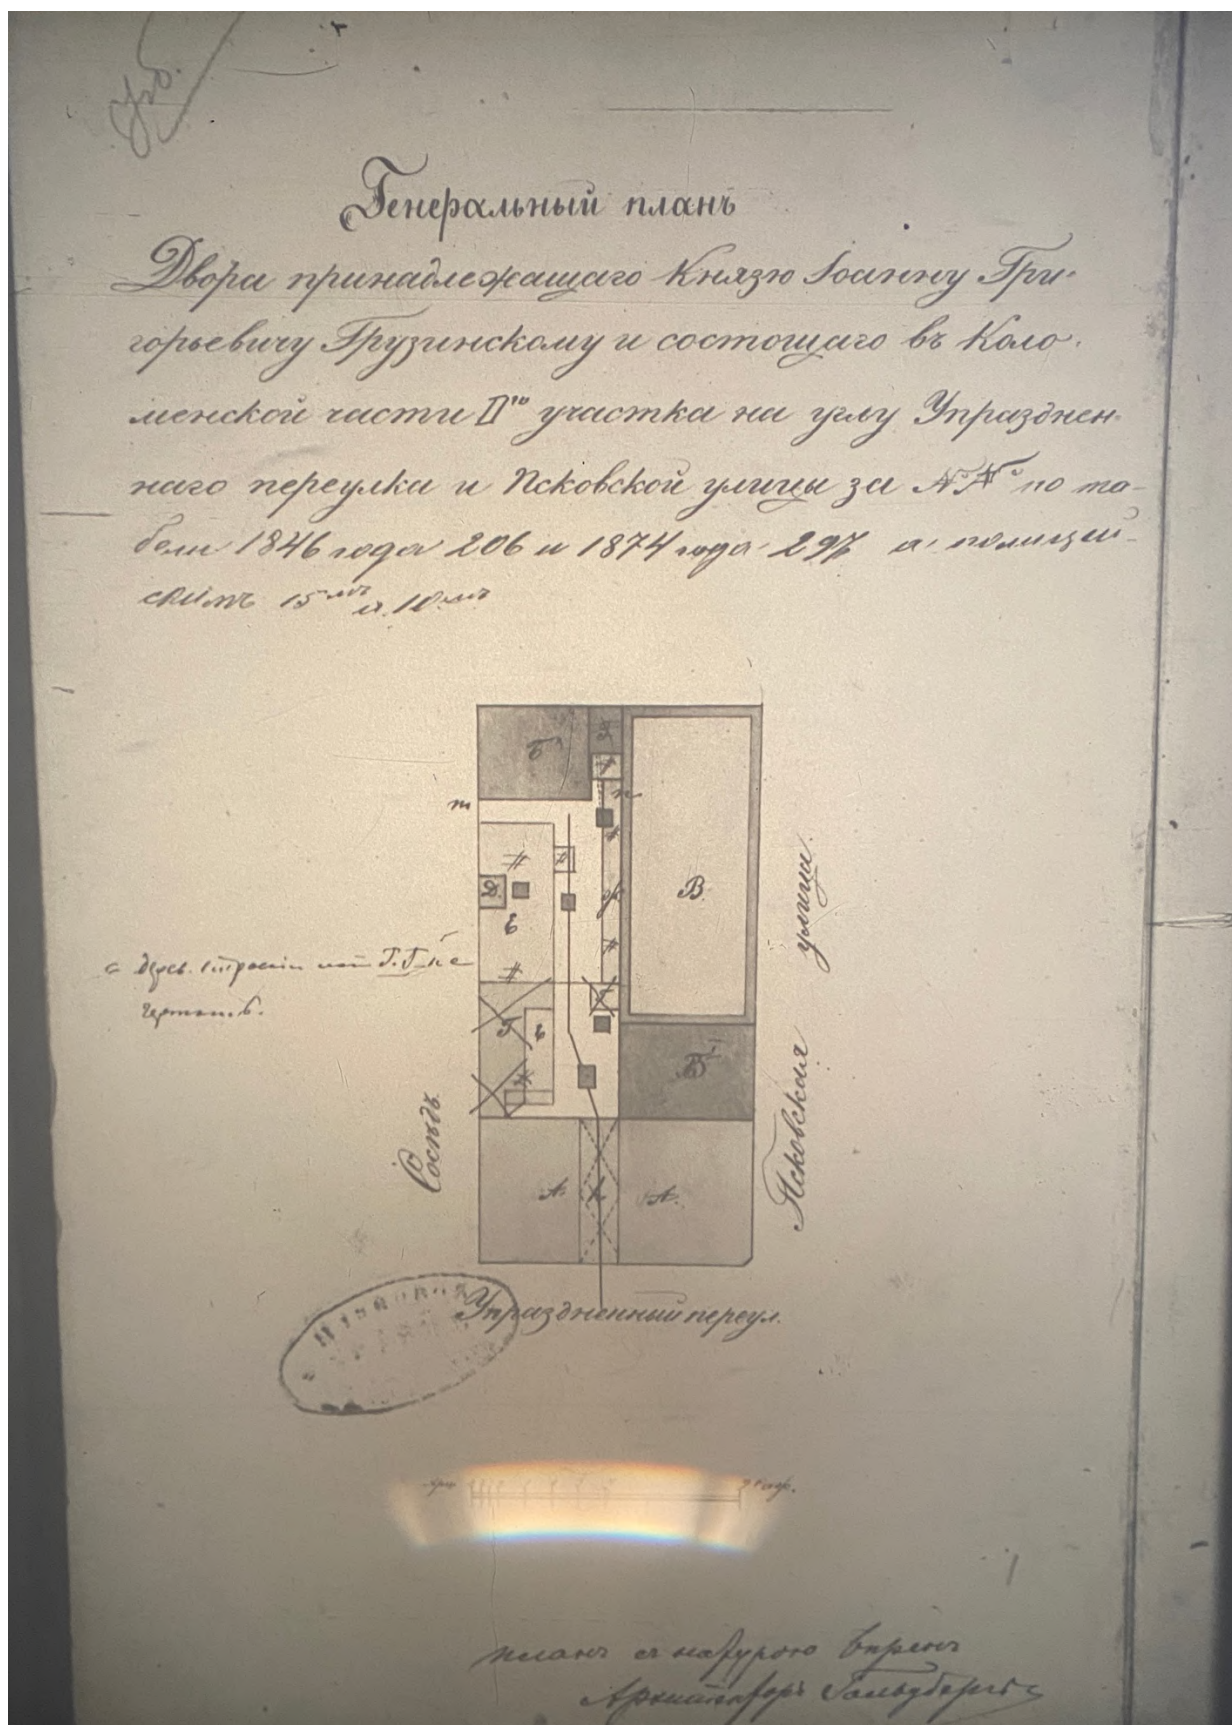 Генеральный планъ
Двора принадлежащаго Князю Іоанну Гри-
горьевичу Грузинскому и состоящаго въ Коло-
менской части II го участка на углу Упразднен-
наго переулка и Псковской улицы за №№ по та-
бели 1846 года 206 и 1874 года 297 а полицей-
скимъ 15 мъ и 10 мъ
Б
Г
m
n
Д
Е
В
Г
Е
Ж
Б
А.
А.
Сосѣдъ
Псковская улица.
Упраздненный переул.
планъ съ натурою вѣренъ
Архитекторъ Гольдбергъ